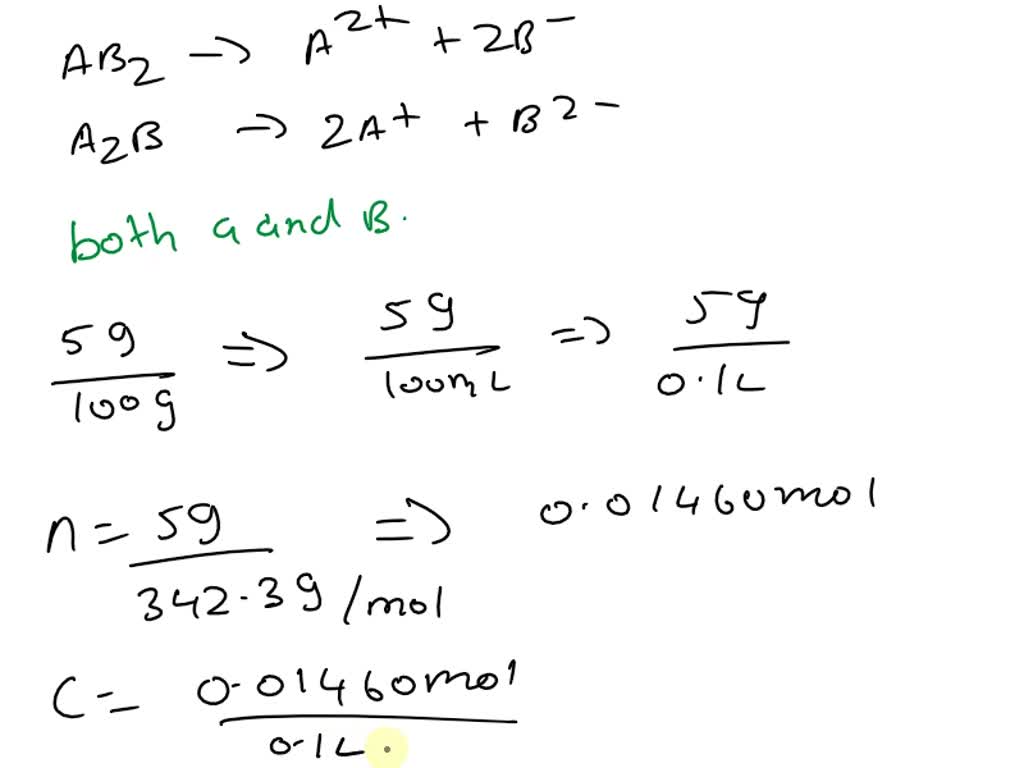 AB₂ → A²⁺ + 2B⁻
A₂B → 2A⁺ + B²⁻
both a and B.
5g/100g => 5g/100mL => 5g/0.1L
n = 5g/342.3g/mol => 0.01460mol
C = 0.01460mol/0.1L